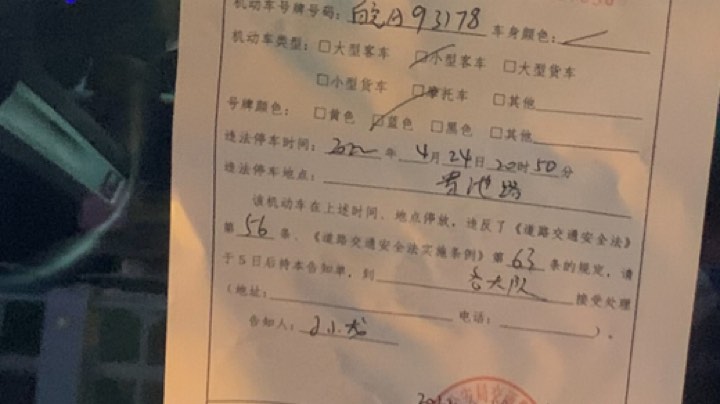 机动车号牌号码：皖A93178 车身颜色：
机动车类型：□大型客车 ☑小型客车 □大型货车
□小型货车 □摩托车 □其他
号牌颜色：□黄色 ☑蓝色 □黑色 □其他
违法停车时间：2022年4月24日20时50分
违法停车地点：贵池路
该机动车在上述时间、地点停放，违反了《道路交通安全法》
第56条、《道路交通安全法实施条例》第63条的规定，请
于5日后持本告知单，到各大队接受处理
（地址： 电话： ）。
告知人：